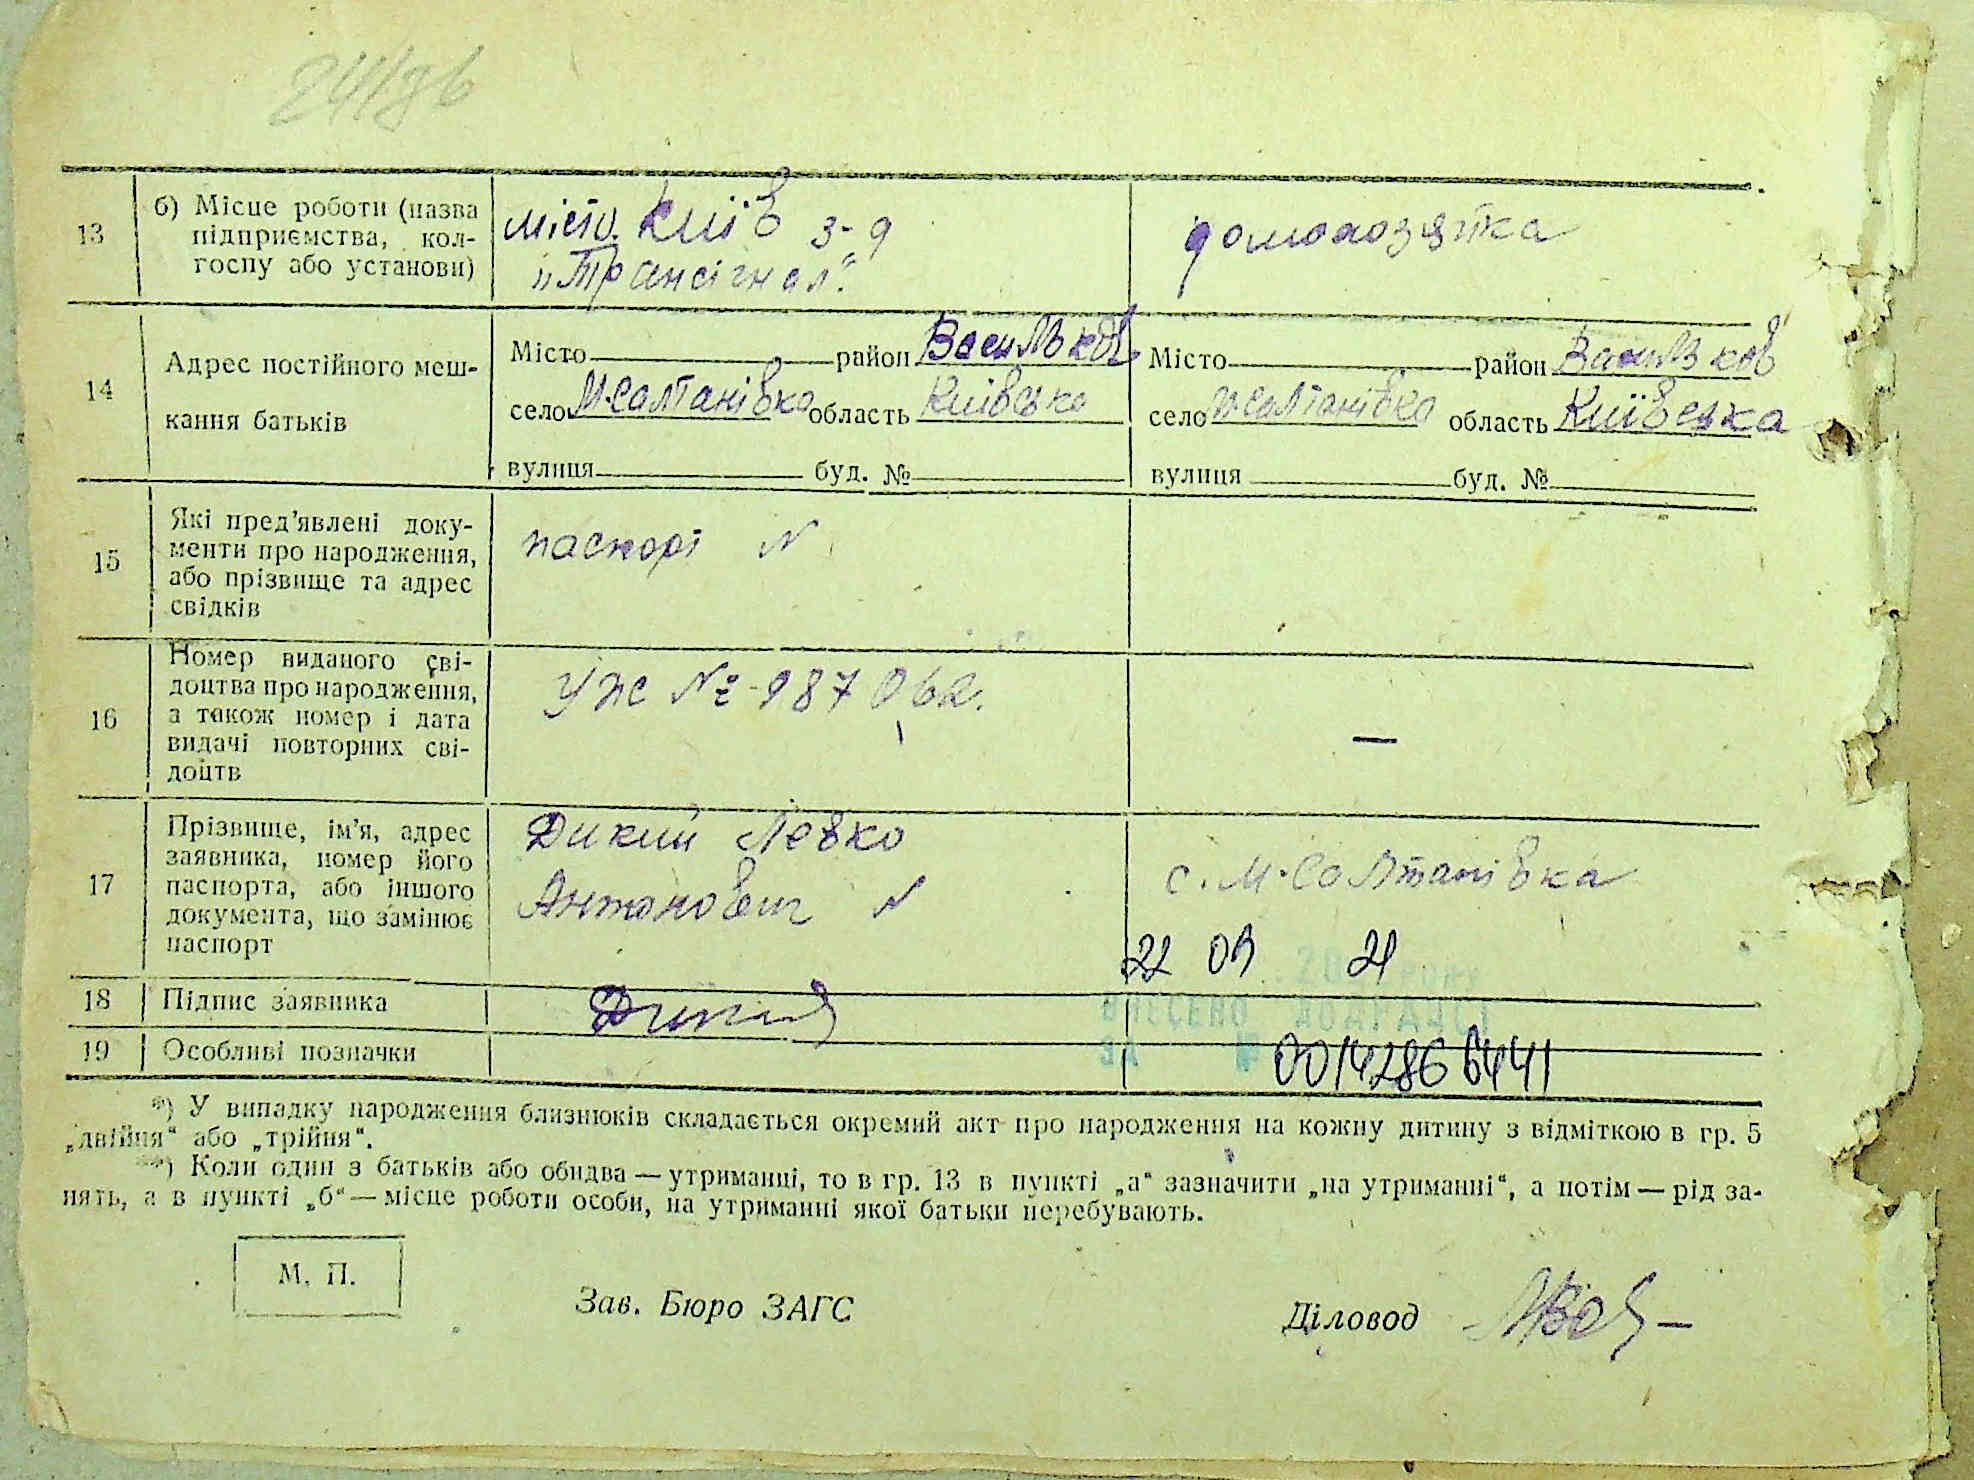 241/дв
13 б) Місце роботи (назва підприємства, кол-госпу або установи)
місто Київ з-д
„Трансігнал“
домогозяйка
14 Адрес постійного меш-
кання батьків
Місто район Васильків
село М-Салтанівка область Київська
вулиця буд. №
Місто район Васильков
село М-Салтанівка область Київська
вулиця буд. №
15 Які пред'явлені доку-
менти про народження,
або прізвище та адрес
свідків
паспорт N
16 Номер виданого сві-
доцтва про народження,
а також номер і дата
видачі повторних сві-
доцтв
УЖ № 987062.
—
17 Прізвище, ім'я, адрес
заявника, номер його
паспорта, або іншого
документа, що замінює
паспорт
Дикий Левко
Антонович N
с. М-Салтанівка
22 09 21
18 Підпис заявника
Дикий
ВНЕСЕНО ДО ДРАЦСГ
ЗА №
19 Особливі позначки
00142866441
*) У випадку народження близнюків складається окремий акт про народження на кожну дитину з відміткою в гр. 5
„двійня“ або „трійня“.
**) Коли один з батьків або обидва — утриманці, то в гр. 13 в пункті „а“ зазначити „на утриманні“, а потім — рід за-
нять, а в пункті „б“ — місце роботи особи, на утриманні якої батьки перебувають.
М. П.
Зав. Бюро ЗАГС
Діловод